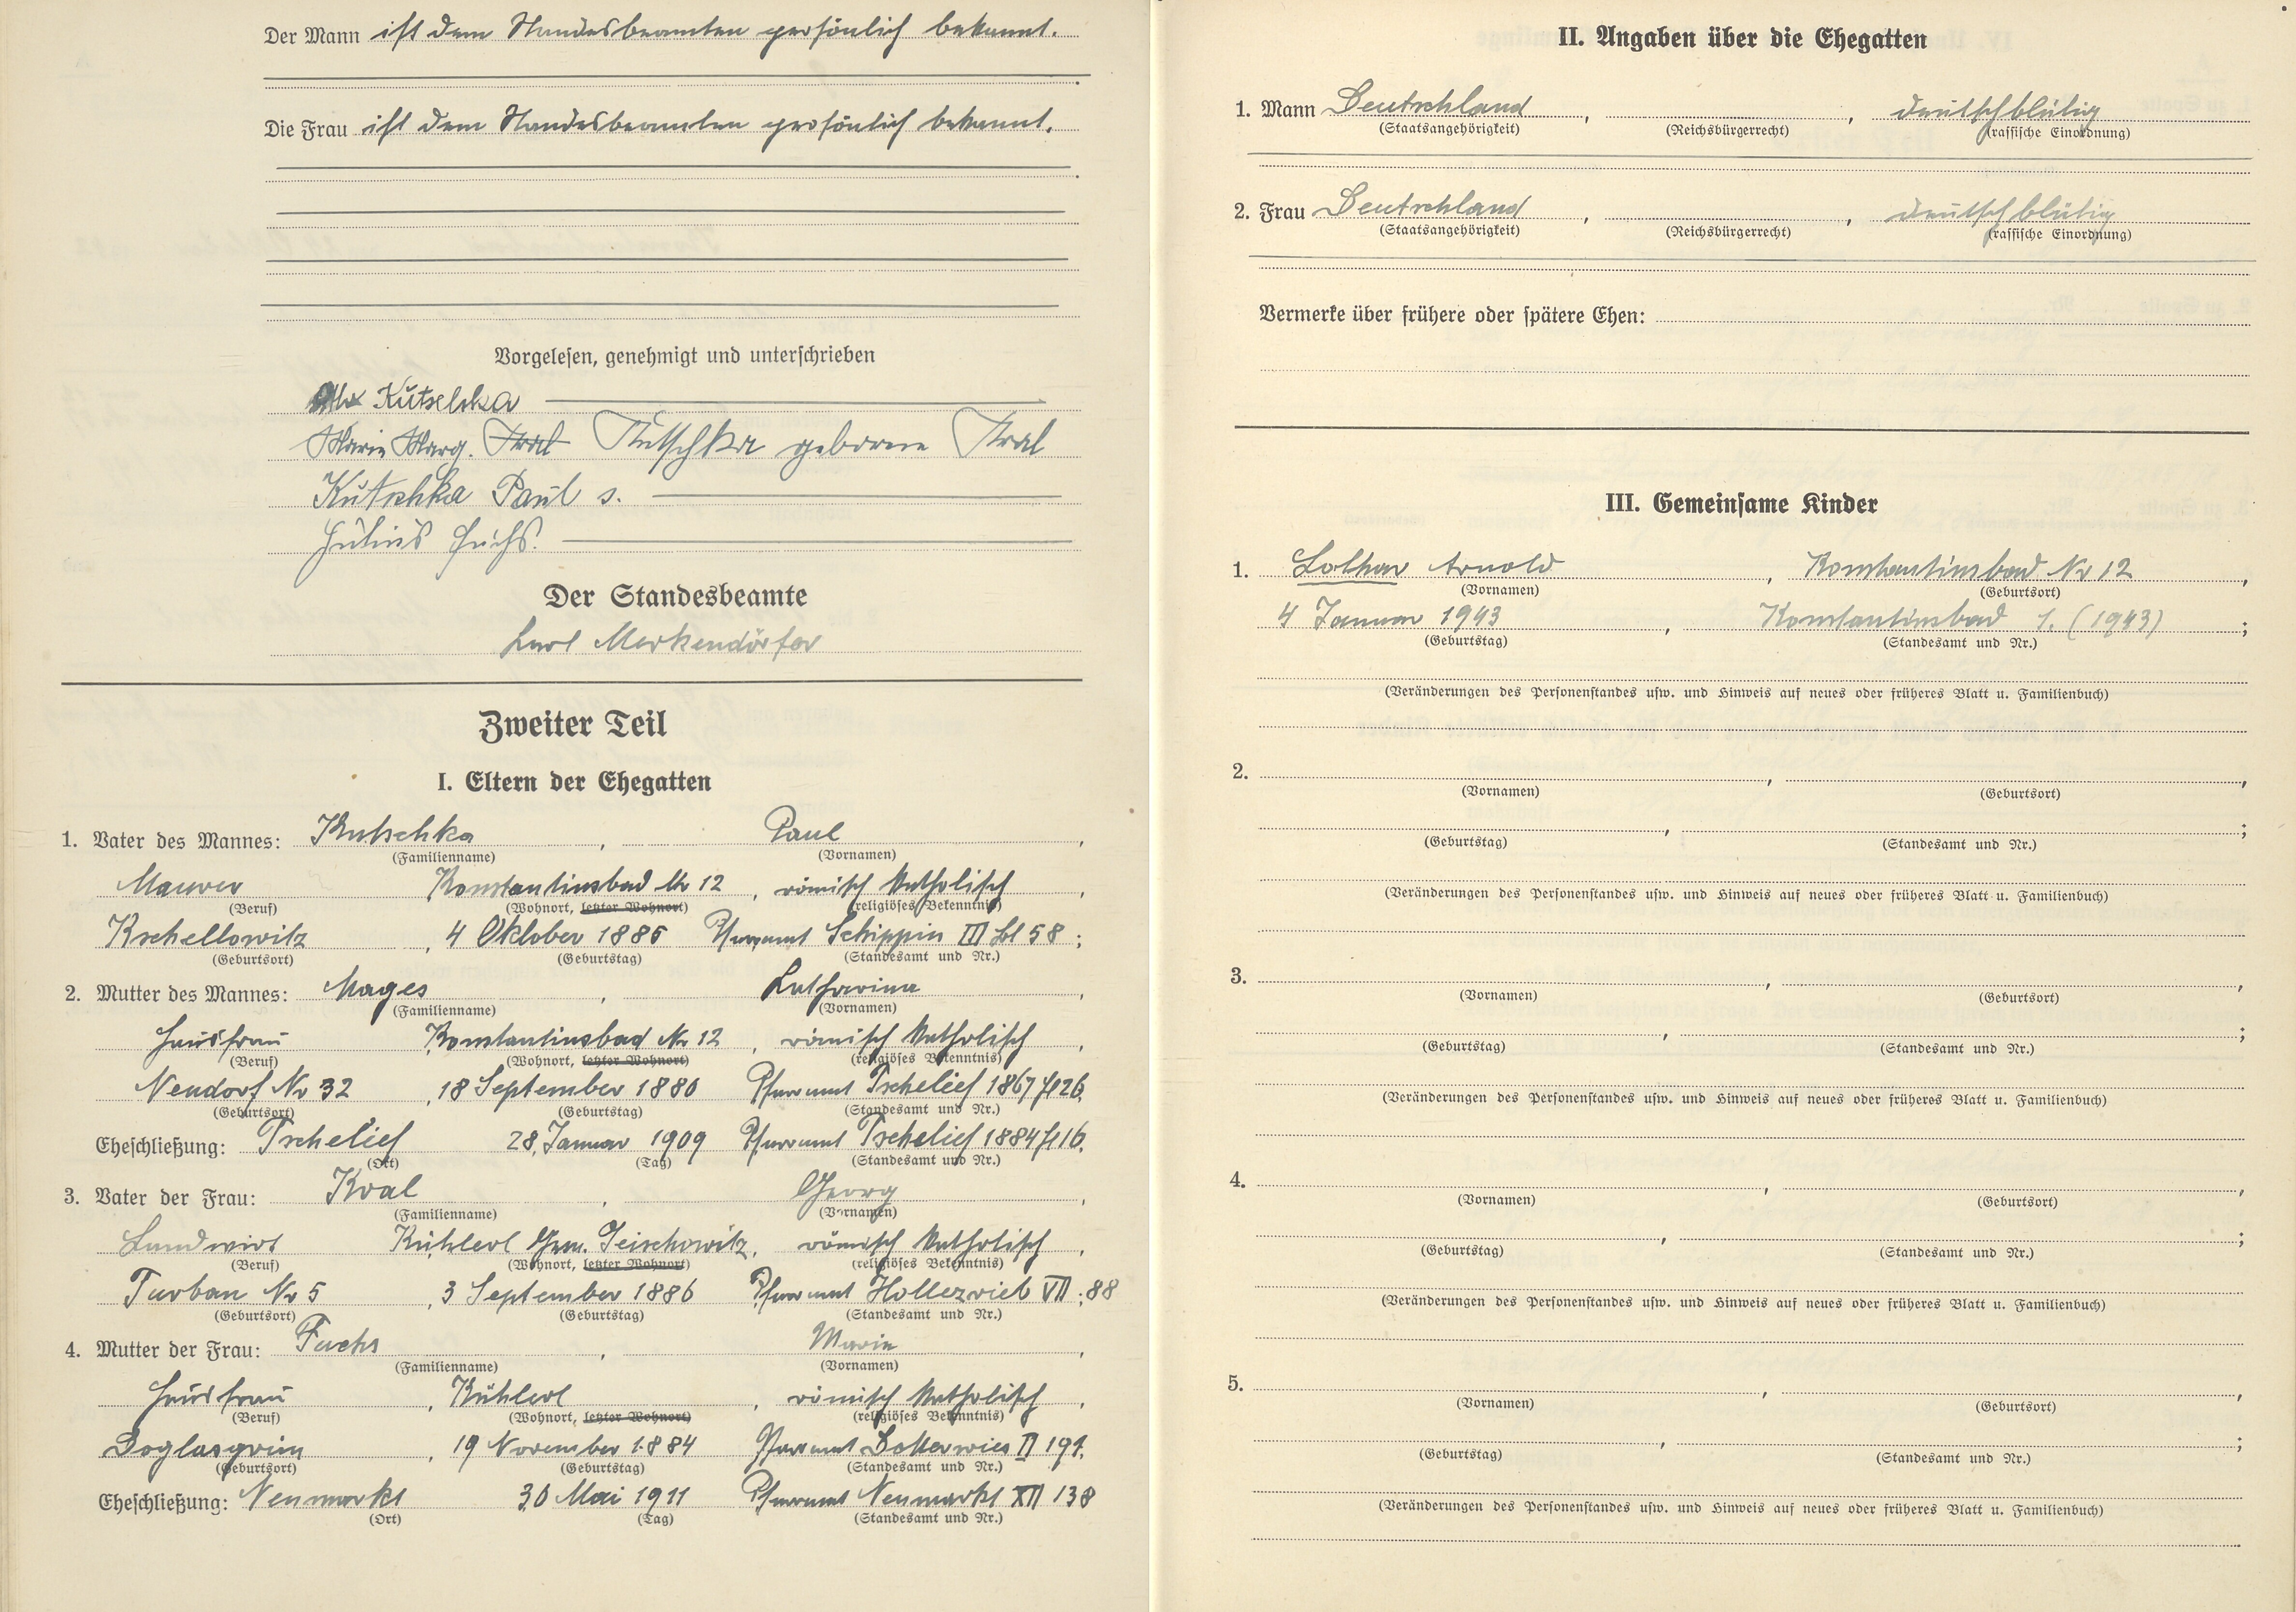 Der Mann ist dem Standesbeamten persönlich bekannt.
Die Frau ist dem Standesbeamten persönlich bekannt.
Vorgelesen, genehmigt und unterschrieben
Kutschka
Marie Marg. Kral Kutschka geborene Kral
Kutschka Paul s.
Julius Fuchs.
Der Standesbeamte
Karl Merkendörfer
Zweiter Teil
I. Eltern der Ehegatten
1. Vater des Mannes: Kutschka, Paul,
(Familienname) (Vornamen)
Maurer Konstantinsbad Nr 12, römisch katholisch,
(Beruf) (Wohnort, letzter Wohnort) (religiöses Bekenntnis)
Kschellowitz, 4 Oktober 1886 Pfarramt Schippin III Bl 58;
(Geburtsort) (Geburtstag) (Standesamt und Nr.)
2. Mutter des Mannes: Mages, Katharina,
(Familienname) (Vornamen)
Hausfrau Konstantinsbad Nr 12, römisch katholisch,
(Beruf) (Wohnort, letzter Wohnort) (religiöses Bekenntnis)
Neudorf Nr 32, 18 September 1880 Pfarramt Tschelief 1867 126.
(Geburtsort) (Geburtstag) (Standesamt und Nr.)
Eheschließung: Tschelief 28. Januar 1909 Pfarramt Tschelief 1884 116.
(Ort) (Tag) (Standesamt und Nr.)
3. Vater der Frau: Kral, Georg,
(Familienname) (Vornamen)
Landwirt Kühlerl Gem. Geischowitz, römisch katholisch,
(Beruf) (Wohnort, letzter Wohnort) (religiöses Bekenntnis)
Turban Nr 5, 3 September 1886 Pfarramt Hollezrieb VII 88
(Geburtsort) (Geburtstag) (Standesamt und Nr.)
4. Mutter der Frau: Fuchs, Marie,
(Familienname) (Vornamen)
Hausfrau, Kühlerl, römisch katholisch,
(Beruf) (Wohnort, letzter Wohnort) (religiöses Bekenntnis)
Doglasgrün, 19 November 1884 Pfarramt II 191.
(Geburtsort) (Geburtstag) (Standesamt und Nr.)
Eheschließung: Neumarkt 30 Mai 1911 Pfarramt Neumarkt XII 138
(Ort) (Tag) (Standesamt und Nr.)
II. Angaben über die Ehegatten
1. Mann Deutschland, , deutschblütig
(Staatsangehörigkeit) (Reichsbürgerrecht) (rassische Einordnung)
2. Frau Deutschland, , deutschblütig
(Staatsangehörigkeit) (Reichsbürgerrecht) (rassische Einordnung)
Vermerke über frühere oder spätere Ehen:
III. Gemeinsame Kinder
1. Lothar Arnold, Konstantinsbad Nr 12,
(Vornamen) (Geburtsort)
4 Januar 1943, Konstantinsbad 1. (1943);
(Geburtstag) (Standesamt und Nr.)
(Veränderungen des Personenstandes usw. und Hinweis auf neues oder früheres Blatt u. Familienbuch)
2. , ,
(Vornamen) (Geburtsort)
, ;
(Geburtstag) (Standesamt und Nr.)
(Veränderungen des Personenstandes usw. und Hinweis auf neues oder früheres Blatt u. Familienbuch)
3. , ,
(Vornamen) (Geburtsort)
, ;
(Geburtstag) (Standesamt und Nr.)
(Veränderungen des Personenstandes usw. und Hinweis auf neues oder früheres Blatt u. Familienbuch)
4. , ,
(Vornamen) (Geburtsort)
, ;
(Geburtstag) (Standesamt und Nr.)
(Veränderungen des Personenstandes usw. und Hinweis auf neues oder früheres Blatt u. Familienbuch)
5. , ,
(Vornamen) (Geburtsort)
, ;
(Geburtstag) (Standesamt und Nr.)
(Veränderungen des Personenstandes usw. und Hinweis auf neues oder früheres Blatt u. Familienbuch)